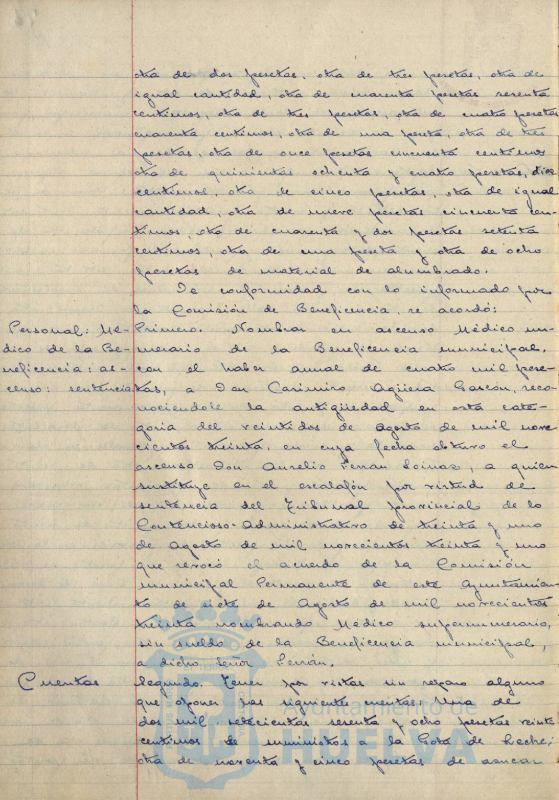 otra de dos pesetas, otra de tres pesetas, otra de
igual cantidad, otra de cuarenta pesetas sesenta
centimos, otra de tres pesetas, otra de cuatro pesetas
cuarenta centimos, otra de una peseta, otra de tres
pesetas, otra de once pesetas cincuenta centimos
otra de quinientas ochenta y cuatro pesetas, diez
centimos, otra de cinco pesetas, otra de igual
cantidad, otra de nueve pesetas cincuenta cen-
timos, otra de cuarenta y dos pesetas setenta
centimos, otra de una peseta y otra de ocho
pesetas de material de alumbrado.
De conformidad con lo informado por
la Comisión de Beneficencia, se acordó:
Personal: Mé-
dico de la Be-
neficencia: as-
censo: sentencia
Primero. Nombrar en ascenso Médico nu-
merario de la Beneficencia municipal,
con el haber anual de cuatro mil pese-
tas, a Don Casimiro Agüera Garcón, reco-
nociendole la antigüedad en esta cate-
goria del veintidos de agosto de mil nove
cientos treinta, en cuya fecha obtuvo el
ascenso Don Aurelio Ferran Loinaz, a quien
sustituye en el escalafón por virtud de
sentencia del Tribunal provincial de lo
Contencioso-Administrativo de treinta y uno
de Agosto de mil novecientos treinta y uno
que revocó el acuerdo de la Comisión
municipal Permanente de este Ayuntamien-
to de siete de Agosto de mil novecientos
treinta nombrando Médico supernumerario,
sin sueldo de la Beneficencia municipal,
a dicho Señor Ferrán.
Cuentas
Segundo. Tener por vistas sin reparo alguno
que oponer las siguientes cuentas: Una de
dos mil setecientas sesenta y ocho pesetas veinte
centimos de suministros a la Gota de Leche;
otra de noventa y cinco pesetas de azucar
Ayuntamiento de
HUELVA